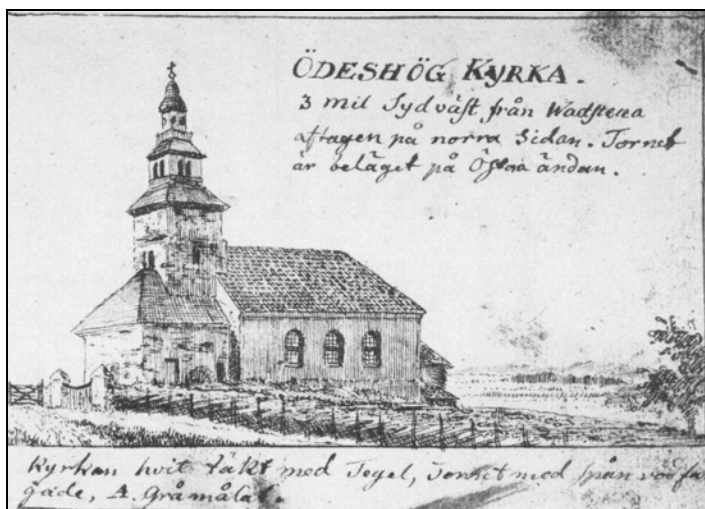 ÖDESHÖG KYRKA.
3 mil Sydväst från Wadstena
aftagen på norra Sidan. Tornet
är beläget på Östra ändan.
Kyrkan hvit täkt med Tegel, Tornet med spån rödfä
gade, A. Gråmålat.